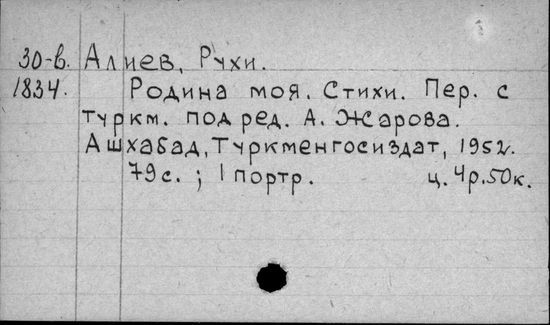 30-в. Алиев, Рухи.
1834. Родина моя. Стихи. Пер. с
туркм. под ред. А. Жарова.
Ашхабад, Туркменгосиздат, 1952.
79с. ; 1 портр. ц. 4р.50к.